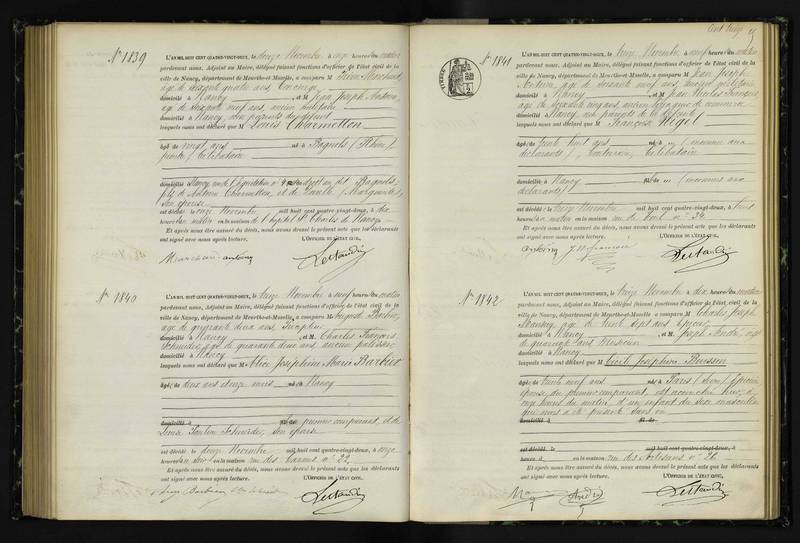 N° 1839
L'AN MIL HUIT CENT QUATRE-VINGT-DEUX, le douze Novembre à onze heures du matin
pardevant nous, Adjoint au Maire, délégué faisant fonctions d'officier de l'état civil de la
ville de Nancy, département de Meurthe-et-Moselle, a comparu M Marchal
âgé de soixante quatre ans, Concierge
domicilié à Nancy, et M Jean Joseph Antoine,
âgé de soixante neuf ans, ancien militaire
domicilié à Nancy, non parents du défunt
lesquels nous ont déclaré que M Louis Charmetton
âgé de vingt ans né à Bagnols (Rhône)
célibataire
domicilié Nancy
fils de Antoine Charmetton, et de (Marguerite)
son épouse
est décédé le onze Novembre mil huit cent quatre-vingt-deux, à dix
heures du matin en la maison de l'hôpital St Charles de Nancy
Et après nous être assuré du décès, nous avons dressé le présent acte que les déclarants
ont signé avec nous après lecture. L'OFFICIER DE L'ÉTAT CIVIL,
Marchal antoine
N° 1840
L'AN MIL HUIT CENT QUATRE-VINGT-DEUX, le treize Novembre à neuf heures du matin
pardevant nous, Adjoint au Maire, délégué faisant fonctions d'officier de l'état civil de la
ville de Nancy, département de Meurthe-et-Moselle, a comparu M Auguste Barbier,
âgé de quarante deux ans,
domicilié à Nancy, et M Charles François
Schneider, âgé de quarante deux ans, ancien pâtissier
domicilié à Nancy
lesquels nous ont déclaré que M Alice Joséphine Maria Barbier
âgée de deux ans onze mois née à Nancy
domicilié à fille de premier comparant et de
Louise Schneider, son épouse
est décédée le douze Novembre mil huit cent quatre-vingt-deux, à onze
heures du en la maison rue des n° 22
Et après nous être assuré du décès, nous avons dressé le présent acte que les déclarants
ont signé avec nous après lecture. L'OFFICIER DE L'ÉTAT CIVIL,
Barbier
Cent
N° 1841
TIMBRE
L'AN MIL HUIT CENT QUATRE-VINGT-DEUX, le treize Novembre à neuf heures du matin
pardevant nous, Adjoint au Maire, délégué faisant fonctions d'officier de l'état civil de la
ville de Nancy, département de Meurthe-et-Moselle, a comparu M Jean Joseph
Antoine, âgé de soixante neuf ans, ancien militaire
domicilié à Nancy, et M Jean Nicolas François
âgé de soixante cinq ans, ancien de commerce
domicilié à Nancy non parents de la défunte
lesquels nous ont déclaré que M Françoise Higel
âgée de trente huit ans née à (inconnu aux
déclarants), célibataire
domiciliée à Nancy fille de (inconnus aux
déclarants)
est décédée le treize Novembre mil huit cent quatre-vingt-deux, à trois
heures du matin en la maison rue de n° 34
Et après nous être assuré du décès, nous avons dressé le présent acte que les déclarants
ont signé avec nous après lecture. L'OFFICIER DE L'ÉTAT CIVIL,
antoine J N françois
N° 1842
L'AN MIL HUIT CENT QUATRE-VINGT-DEUX, le treize Novembre à dix heures du matin
pardevant nous, Adjoint au Maire, délégué faisant fonctions d'officier de l'état civil de la
ville de Nancy, département de Meurthe-et-Moselle, a comparu M Charles Joseph
âgé de trente sept ans
domicilié à Nancy, et M Joseph André, âgé
de quarante ans
domicilié à Nancy
lesquels nous ont déclaré que M Cécile Joséphine Buisson
âgée de trente neuf ans née à Paris (Seine)
épouse du premier comparant, est accouchée hier, à
onze heures du matin, d'un enfant du sexe masculin
qui nous a été présenté sans vie
domicilié à fil de
est décédé le mil huit cent quatre-vingt-deux, à
heure d en la maison rue des Artisans n° 22
Et après nous être assuré du décès, nous avons dressé le présent acte que les déclarants
ont signé avec nous après lecture. L'OFFICIER DE L'ÉTAT CIVIL,
André